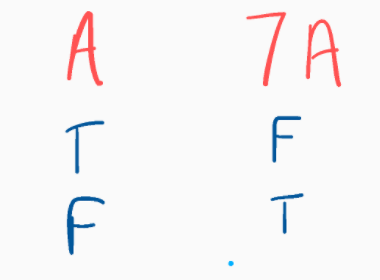 A 7A
T F
F T